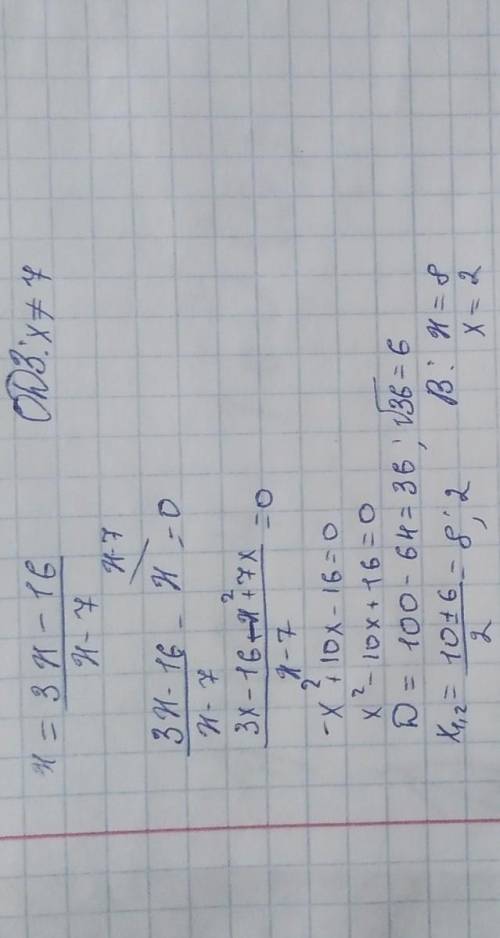 x = \frac{3x - 16}{x - 7} ОДЗ: x ≠ 7
\frac{3x - 16}{x - 7} - x^{/x-7} = 0
\frac{3x - 16 - x^2 + 7x}{x - 7} = 0
-x^2 + 10x - 16 = 0
x^2 - 10x + 16 = 0
D = 100 - 64 = 36; √36 = 6
x_{1,2} = \frac{10 ± 6}{2} = 8; 2 В: x = 8
x = 2